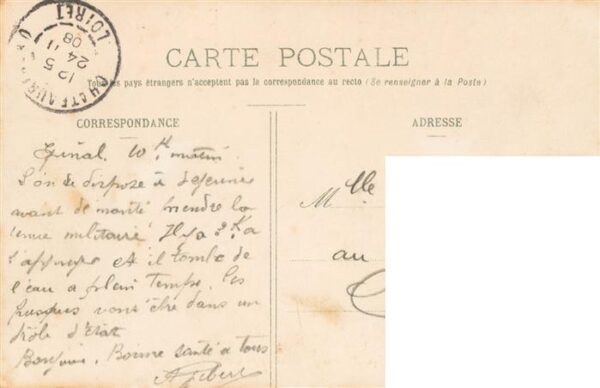 CHATEAUR
12 5
24 11
08
LOIRET
CARTE POSTALE
Tous les pays étrangers n'acceptent pas la correspondance au recto (Se renseigner à la Poste)
CORRESPONDANCE
ADRESSE
Epinal. 10h matin
L'on se dispose à déjeuner
avant de
tenue militaire Il y a 3 K a
et il tombe de
l'eau a plein temps. Les
vont être dans un
drôle d'état
Bonjour. Bonne santé a tous
Mlle
au